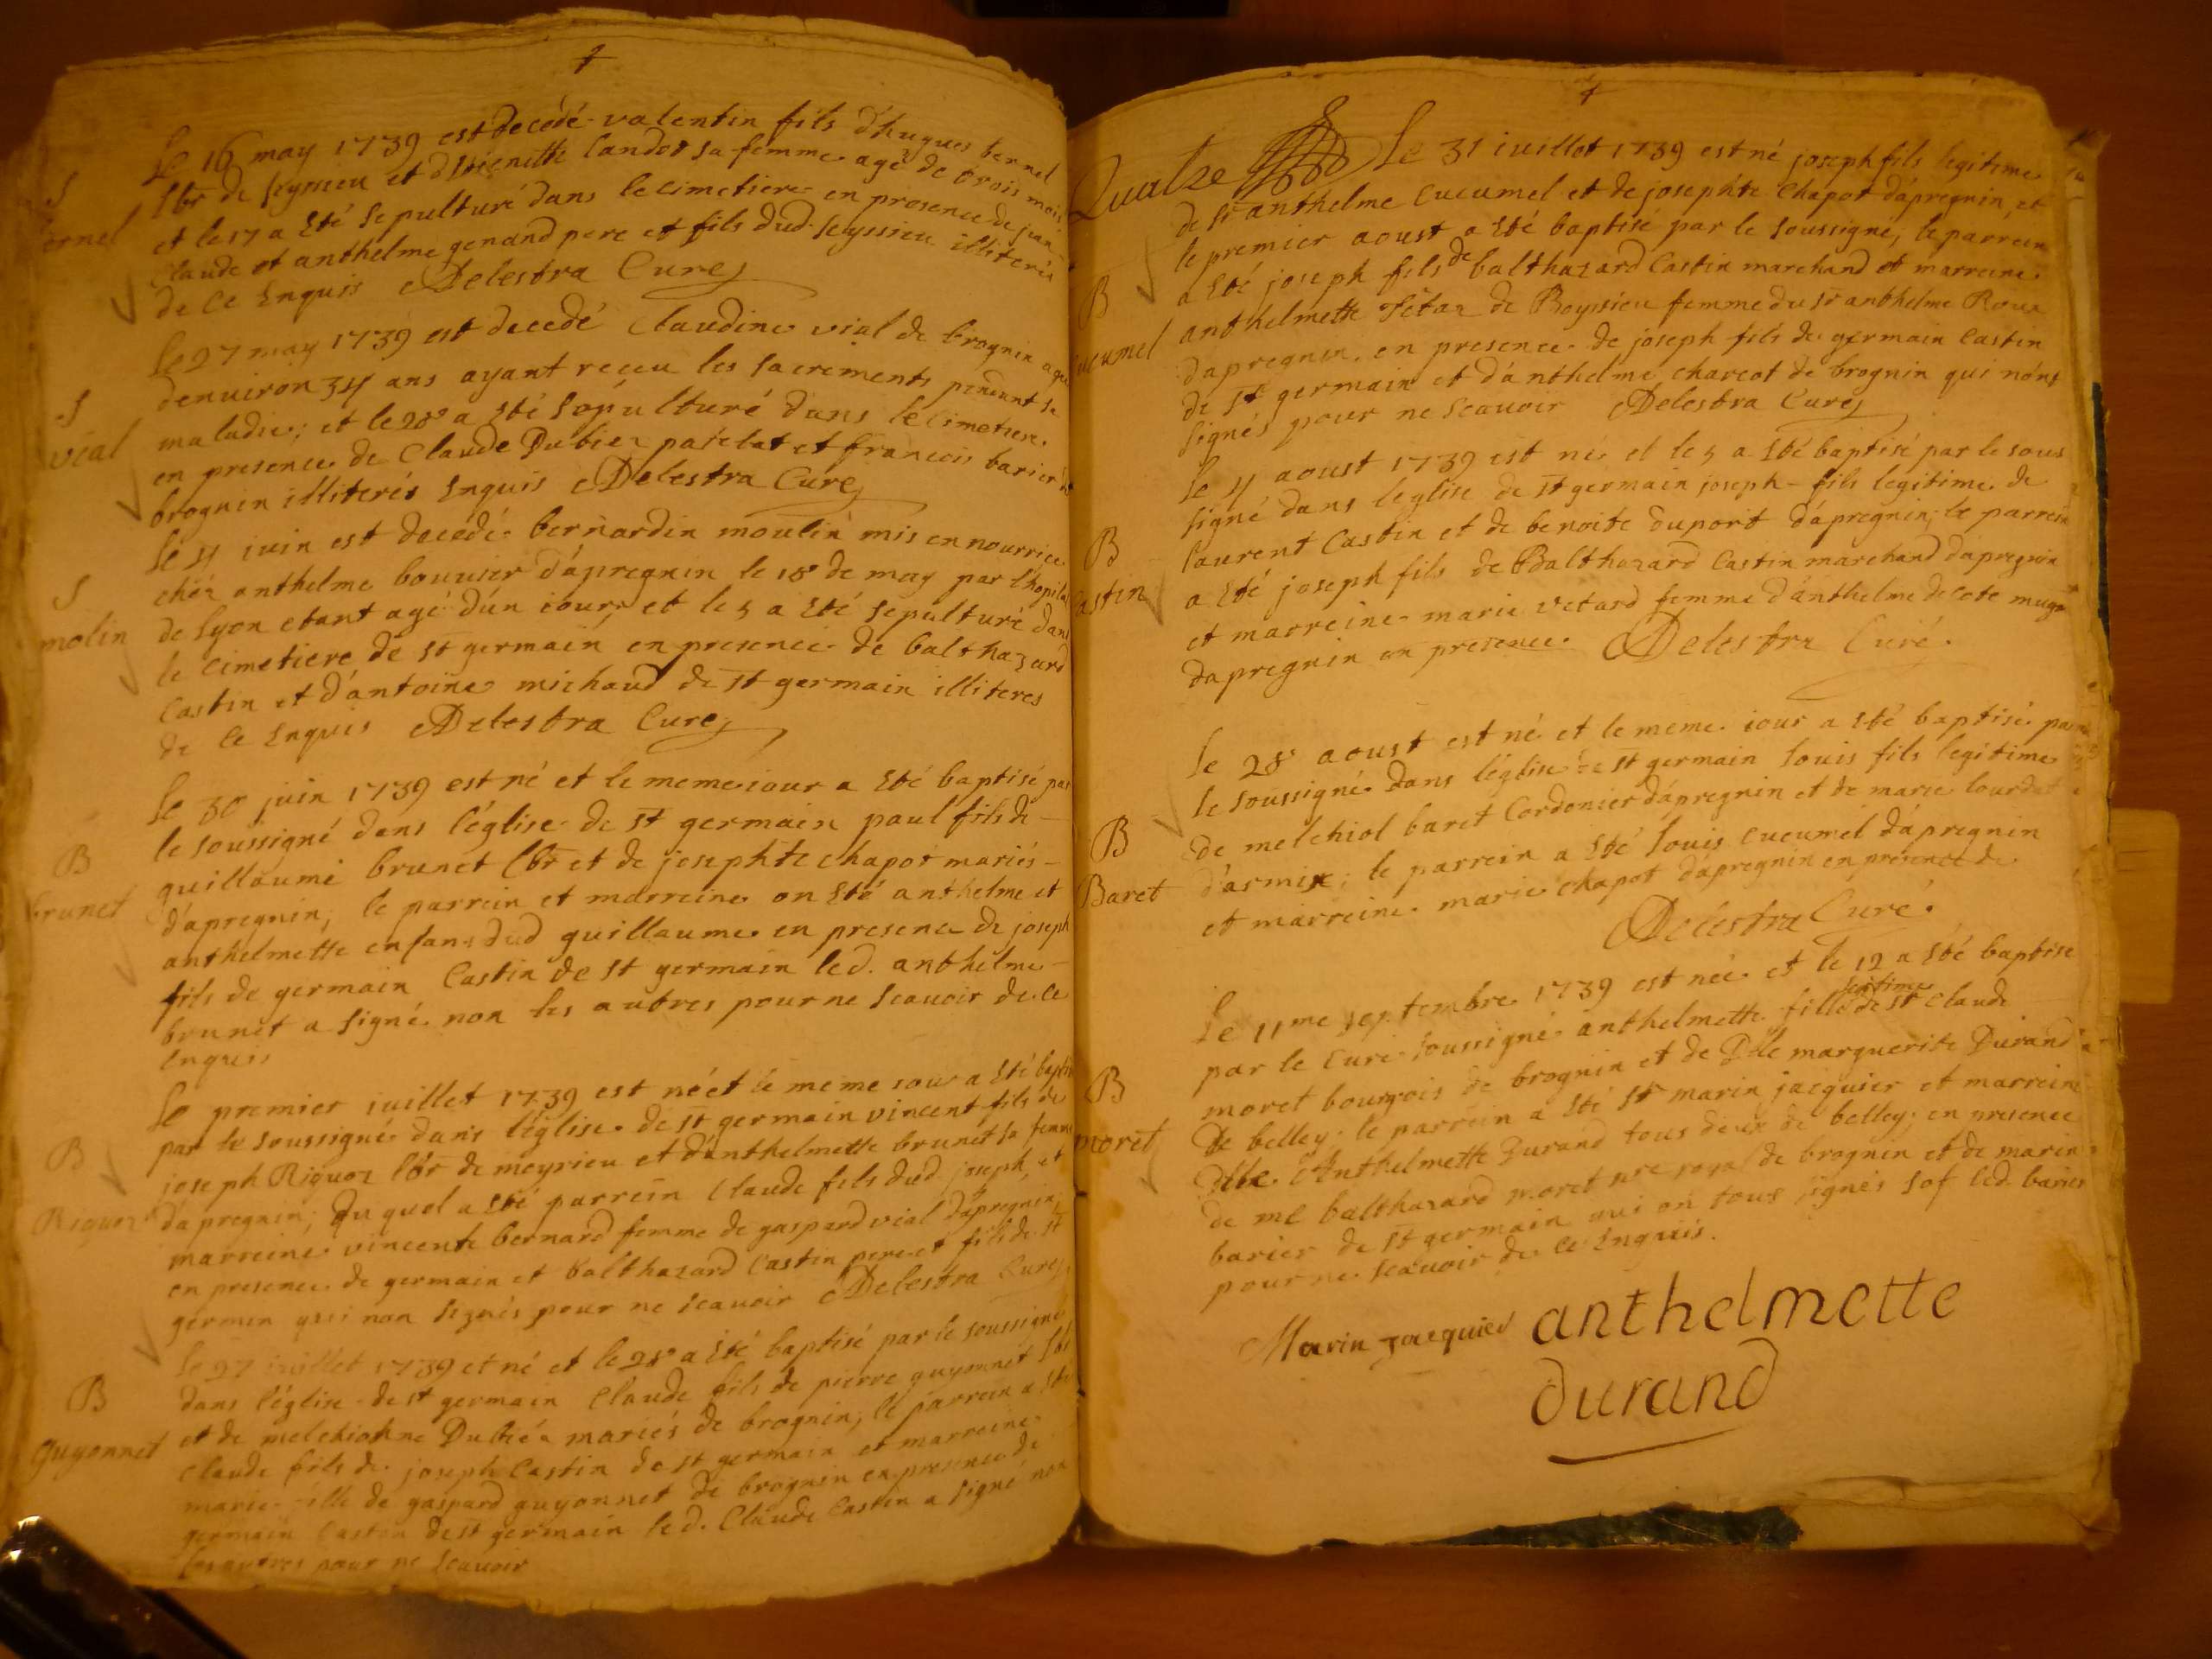 Le 16 may 1739 est decedé valentin fils d'hugues bernel
lbr de seyssieu et dstienette landot sa femme agé de trois mois
et le 17 a Eté sepulturé dans le cimetiere en presence de jean
S
Claude et anthelme genand pere et fils dud. seyssieu illiterés
de ce Enquis Delestra Curé
Le 27 may 1739 est decedé Claudine vial de brognin agé
denuiron 34 ans ayant receu les sacrements pendant sa
S
vial
maladie; et le 28 a Eté sépulturé dans le cimetiere
en presence de Claude Dubiez parelat et francois barier de
brognin illiterés Enquis Delestra Curé
Le 4 iuin est decedé bernardin moulin mis en nourrice
chéz anthelme bouuier d'ápregnin le 18 de may par l'hopital
S
molin
de lyon etant agé d'un iour, et le 5 a Eté sepulturé dans
le cimetiere de st germain en presence de balthazard
Castin et d'antoine michaud de st germain illiteres
de ce Enquis Delestra Curé
Le 30 juin 1739 est né et le meme iour a Eté baptisé par
le soussigné dans l'église de st germain paul fils de
B
brunet
guillaume brunet lbr et de josephte chapot mariés
d'apregnin; le parrein et marreine on Eté anthelme et
anthelmette enfans dud guillaume en presence de joseph
fils de germain Castin de st germain led. anthelme
brunet a signé non les autres pour ne scauoir de ce
Enquis
Le premier iuillet 1739 est né et le meme iour a Eté baptisé
par le soussigné dans l'église de st germain vincent fils de
B
Riguoz
joseph Riguoz lbr de meyrieu et d'anthelmette brunet sa femme
d'apregnin; du quel a Eté parrein Claude fils dud. joseph, et
marreine vincente bernard femme de gaspard vial d'apregnin
en presence de germain et balthazard Castin pere et fils de st
germen qui non signés pour ne scauoir Delestra Curé
Le 27 iuillet 1739 et né et le 28 a Eté baptisé par le soussigné
B
Guyonnet
dans l'église de st germain Claude fils de pierre guyonnet lbr
et de melchionne Dubiéz mariés de brognin; le parrein a Eté
Claude fils de joseph Castin de st germain et marreine
marie fille de gaspard guyonnet de brognin en presence de
germain Castin de st germain led. Claude Castin a signé non
les autres pour ne scauoir
Quatre Le 31 iuillet 1739 est né joseph fils legitime
de sr anthelme Cucumel et de josephte Chapot d'ápregnin, et
le premier aoust a Eté baptisé par le soussigné; le parrein
B
Cucumel
a Eté joseph fils de balthazard Castin marchand et marreine
anthelmette Fétaz de Boyssieu femme du sr anthelme Roux
dapregnin, en presence de joseph fils de germain Castin
de st germain et d'anthelme charcot de brognin qui n'ónt
signés pour ne scauoir Delestra Curé
Le 4 aoust 1739 est né et le 5 a Eté baptisé par le sous
signé dans leglise de st germain joseph fils legitime de
B
Castin
laurent Castin et de benoite duport d'ápregnin; le parrein
a Eté joseph fils de Balthazard Castin marchand d'apregnin
et marreine marie vetard femme d'ánthelme decote
dapregnin en presence. Delestra Curé.
Le 28 aoust est né et le meme iour a Eté baptisé par
le soussigné dans l'église de st germain louis fils legitime
B
Baret
de melchiol baret Cordonier d'ápregnin et de marie lourdat
d'asmix; le parrein a Eté louis Cucumel d'ápregnin
et marreine marie chapot d'ápregnin en présence de
Delestra Curé.
Le 11me septembre 1739 est née et le 12 a Eté baptisé
par le Curé soussigné anthelmette fille legitime de sr Claude
B
moret
moret bourgois de brognin et de Dlle marguerite Durand
de belley; le parrein a Eté sr marin jacquier et marreine
Dlle Anthelmette Durand tous deux de belley; en presence
de me balthazard moret nre royal de brognin et de marin
barier de st germain qui on tous signés sof led. barier
pour ne scauoir de ce Enquis.
Marin Jacquier anthelmette
durand